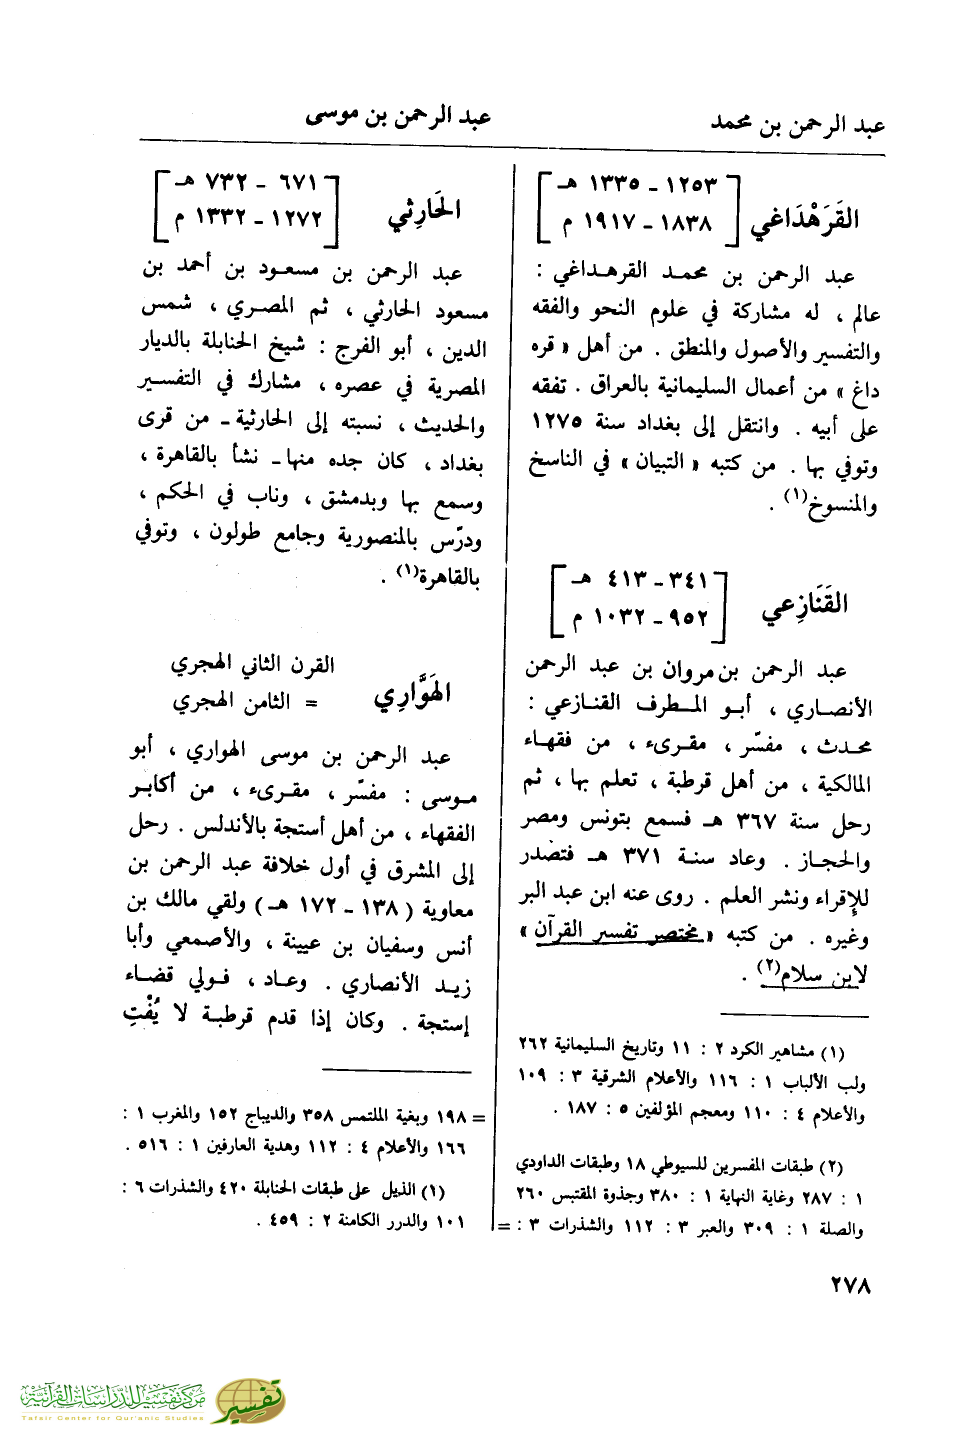 عبد الرحمن بن محمد
عبد الرحمن بن موسى
القَرَهْدَاغي [ ١٢٥٣ - ١٣٣٥ هـ
١٨٣٨ - ١٩١٧ م ]
عبد الرحمن بن محمد القرهداغي :
عالم ، له مشاركة في علوم النحو والفقه
والتفسير والأصول والمنطق . من أهل « قره
داغ » من أعمال السليمانية بالعراق . تفقه
على أبيه . وانتقل إلى بغداد سنة ١٢٧٥
وتوفي بها . من كتبه « التبيان » في الناسخ
والمنسوخ(١) .
القَنَازِعي [ ٣٤١ - ٤١٣ هـ
٩٥٢ - ١٠٣٢ م ]
عبد الرحمن بن مروان بن عبد الرحمن
الأنصاري ، أبو المطرف القنازعي :
محدث ، مفسّر ، مقرىء ، من فقهاء
المالكية ، من أهل قرطبة ، تعلم بها ، ثم
رحل سنة ٣٦٧ هـ فسمع بتونس ومصر
والحجاز . وعاد سنة ٣٧١ هـ فتصدر
للإقراء ونشر العلم . روى عنه ابن عبد البر
وغيره . من كتبه « مختصر تفسير القرآن »
لابن سلام(٢) .
(١) مشاهير الكرد ٢ : ١١ وتاريخ السليمانية ٢٦٢
ولب الألباب ١ : ١١٦ والأعلام الشرقية ٣ : ١٠٩
والأعلام ٤ : ١١٠ ومعجم المؤلفين ٥ : ١٨٧ .
(٢) طبقات المفسرين للسيوطي ١٨ وطبقات الداودي
١ : ٢٨٧ وغاية النهاية ١ : ٣٨٠ وجذوة المقتبس ٢٦٠
والصلة ١ : ٣٠٩ والعبر ٣ : ١١٢ والشذرات ٣ : =
الحَارِثي [ ٦٧١ - ٧٣٢ هـ
١٢٧٢ - ١٣٣٢ م ]
عبد الرحمن بن مسعود بن أحمد بن
مسعود الحارثي ، ثم المصري ، شمس
الدين ، أبو الفرج : شيخ الحنابلة بالديار
المصرية في عصره ، مشارك في التفسير
والحديث ، نسبته إلى الحارثية - من قرى
بغداد ، كان جده منها - نشأ بالقاهرة ،
وسمع بها وبدمشق ، وناب في الحكم ،
ودرّس بالمنصورية وجامع طولون ، وتوفي
بالقاهرة(١) .
القرن الثاني الهجري
الهَوَّارِي
= الثامن الهجري
عبد الرحمن بن موسى الهواري ، أبو
موسى : مفسّر ، مقرىء ، من أكابر
الفقهاء ، من أهل أستجة بالأندلس . رحل
إلى المشرق في أول خلافة عبد الرحمن بن
معاوية ( ١٣٨ - ١٧٢ هـ ) ولقي مالك بن
أنس وسفيان بن عيينة ، والأصمعي وأبا
زيد الأنصاري . وعاد ، فولي قضاء
إستجة . وكان إذا قدم قرطبة لا يُفْتِ
= ١٩٨ وبغية الملتمس ٣٥٨ والديباج ١٥٢ والمغرب ١ :
١٦٦ والأعلام ٤ : ١١٢ وهدية العارفين ١ : ٥١٦ .
(١) الذيل على طبقات الحنابلة ٤٢٠ والشذرات ٦ :
١٠١ والدرر الكامنة ٢ : ٤٥٩ .
٢٧٨
مركز تفسير للدراسات القرآنية
Tafsir Center for Qur'anic Studies
تفسير